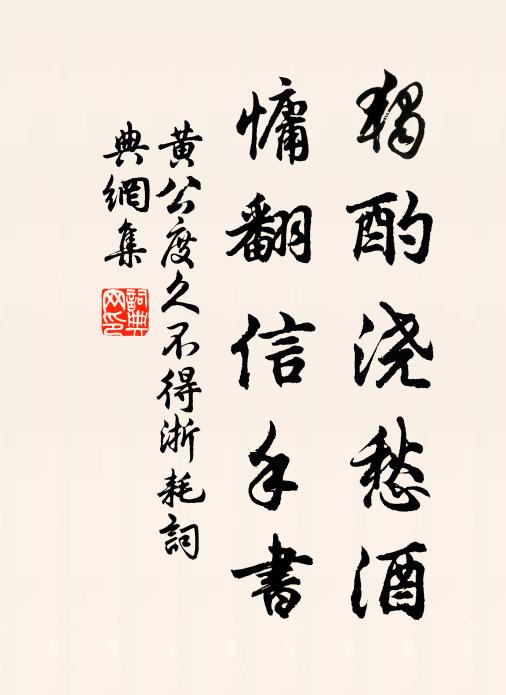 獨酌浇愁酒
慵翻信手書
黄公度久不得浙耗詞
典網集
詞典網印